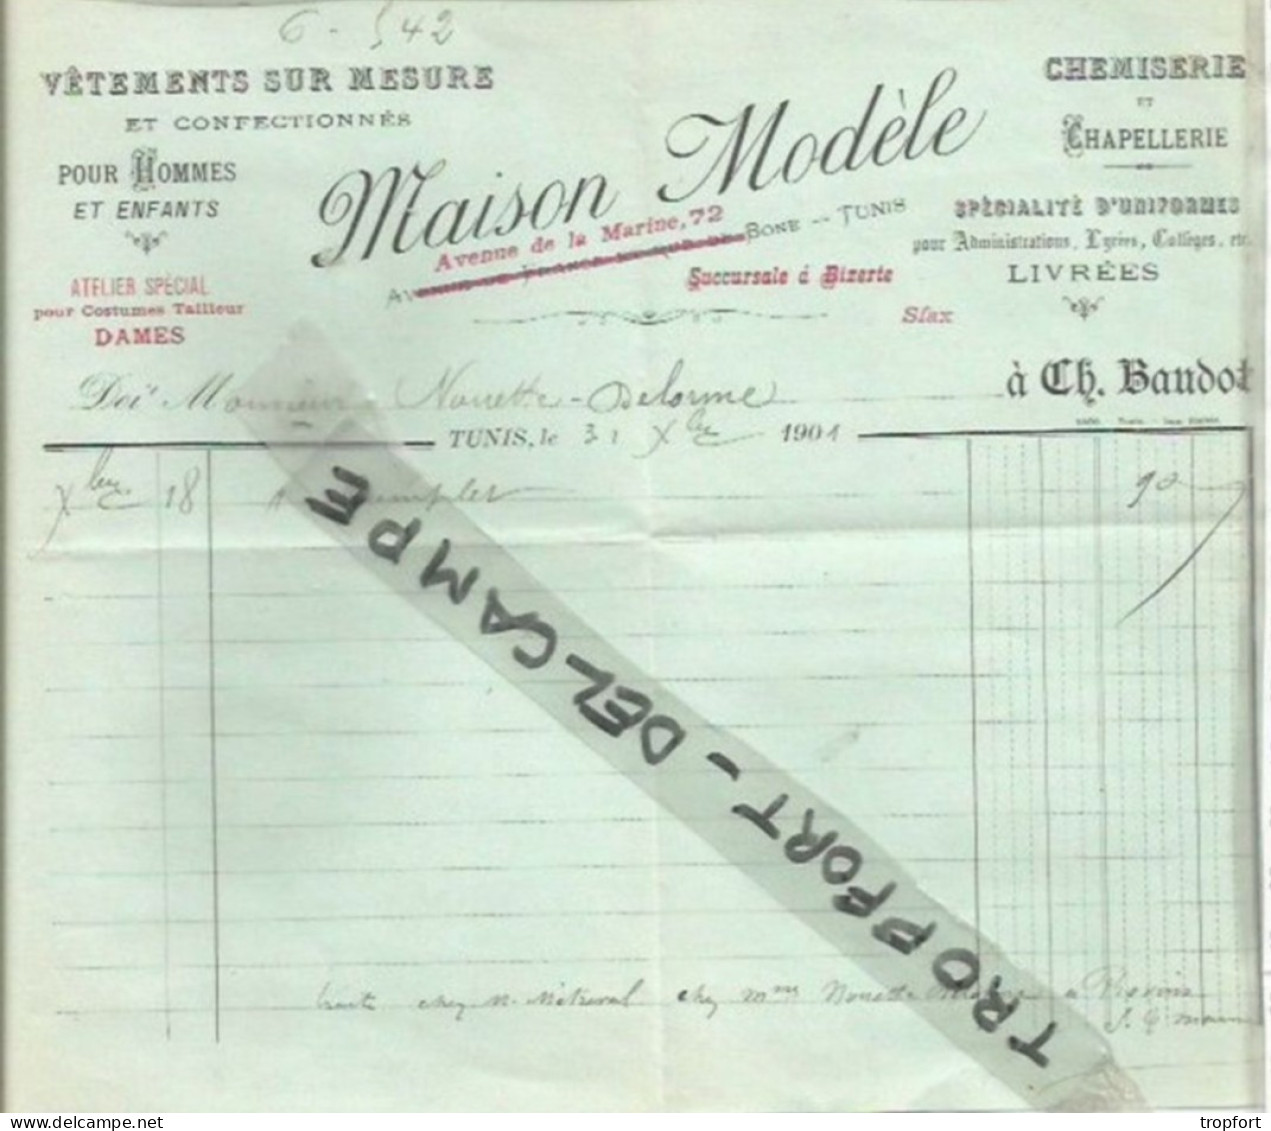 6 - 542
VÊTEMENTS SUR MESURE
ET CONFECTIONNÉS
POUR HOMMES
ET ENFANTS
ATELIER SPÉCIAL
pour Costumes Tailleur
DAMES
Maison Modèle
Avenue de la Marine, 72
AVENUE DE FRANCE ET RUE DE BONE -- TUNIS
Succursale à Bizerte
Sfax
CHEMISERIE
ET
CHAPELLERIE
SPÉCIALITÉ D'UNIFORMES
pour Administrations, Lycées, Collèges, etc.
LIVRÉES
Doit Monsieur Nouette-Delorme à Ch. Baudot
TUNIS, le 31 Xbre 1901
Xbre 18 1 complet 90
traite chez M. chez Mme Nouette a
TROPFORT - DEL-CAMPE
tropfort